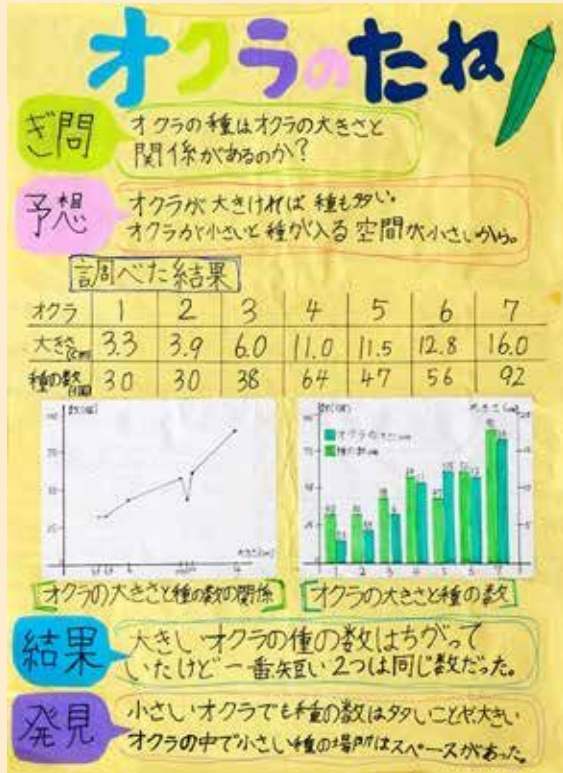 オクラのたね
ぎ問
オクラの種はオクラの大きさと
関係があるのか？
予想
オクラが大きければ種も多い。
オクラが小さいと種が入る空間が小さいから。
調べた結果
オクラ 1 2 3 4 5 6 7
大きさ(cm) 3.3 3.9 6.0 11.0 11.5 12.8 16.0
種の数(個) 30 30 38 64 47 56 92
数(個)
大きさ(cm)
数(個) 大きさ(cm)
オクラの大きさ
種の数
1 2 3 4 5 6 7
オクラの大きさと種の数の関係
オクラの大きさと種の数
結果
大きいオクラの種の数はちがって
いたけど一番短い2つは同じ数だった。
発見
小さいオクラでも種の数は多いことや、大きい
オクラの中で小さい種の場所はスペースがあった。